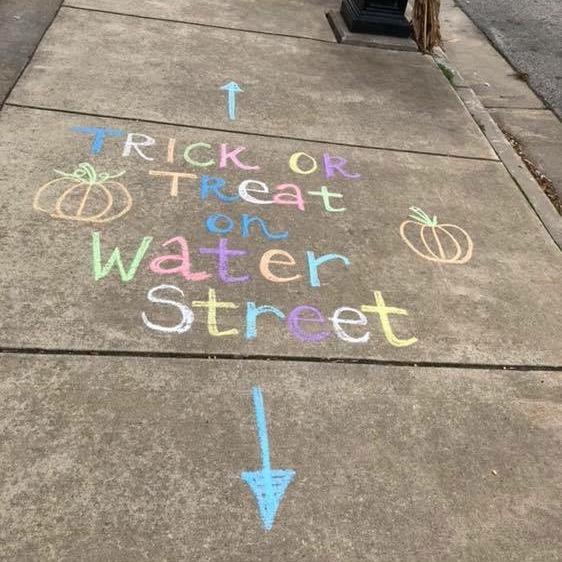 TRICK OR
TReat
on
Water
Street